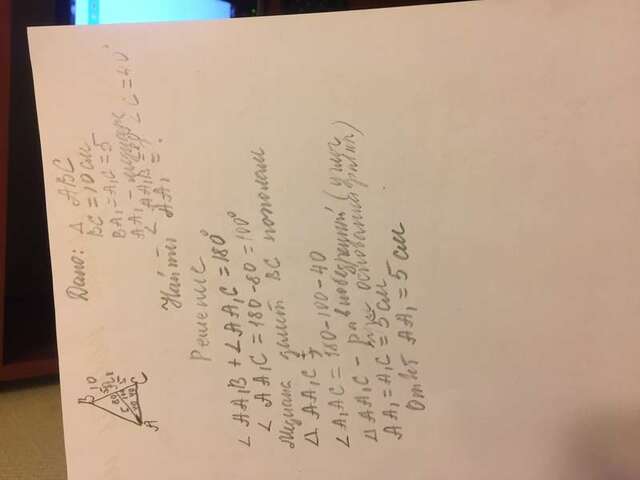 B
10
5
A₁
80
100
5
5
40
40
A
C
Дано: Δ ABC
BC = 10 см
BA₁ = A₁C = 5
AA₁ - медиана
∠ AA₁B = 80° ∠C = 40°
Найти AA₁ = ?
Решение
∠ AA₁B + ∠AA₁C = 180°
∠ AA₁C = 180 - 80 = 100°
Медиана делит BC пополам
Δ AA₁C
∠ A₁AC = 180 - 100 - 40
Δ AA₁C - равнобедренный (углы
при основании равны)
AA₁ = A₁C = 5 см
Ответ AA₁ = 5 см